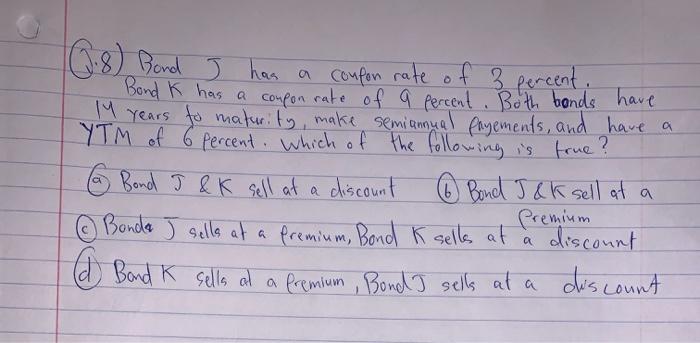 Q.8) Bond J has a coupon rate of 3 percent.
Bond K has a coupon rate of 9 percent. Both bonds have
14 years to maturity, make semiannual payements, and have a
YTM of 6 percent. Which of the following is true?
(a) Bond J & K sell at a discount (b) Bond J & K sell at a
Premium
(c) Bonds J sells at a premium, Bond K sells at a discount
(d) Bond K sells at a premium, Bond J sells at a discount